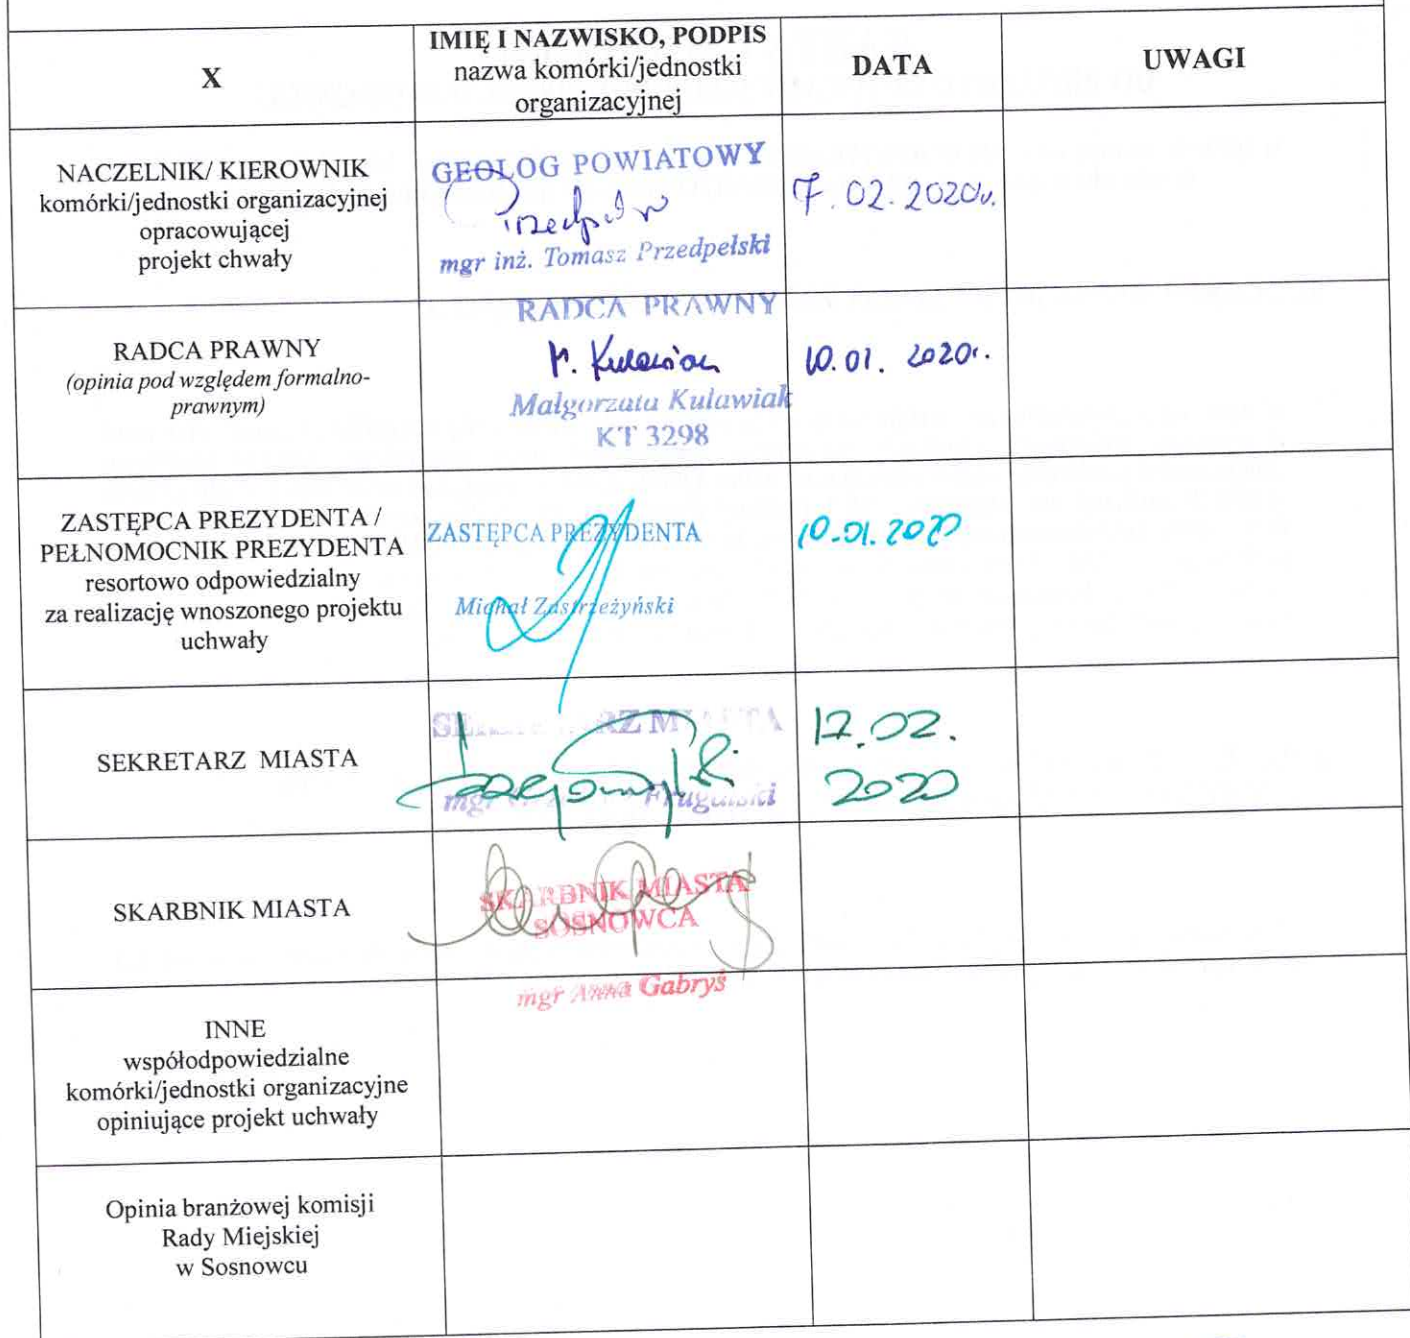 X
IMIĘ I NAZWISKO, PODPIS
nazwa komórki/jednostki
organizacyjnej
DATA
UWAGI
NACZELNIK/ KIEROWNIK
komórki/jednostki organizacyjnej
opracowującej
projekt chwały
GEOLOG POWIATOWY
mgr inż. Tomasz Przedpełski
7.02.2020r.
RADCA PRAWNY
(opinia pod względem formalno-
prawnym)
RADCA PRAWNY
M. Kulawiak
Małgorzata Kulawiak
KT 3298
10.01. 2020r.
ZASTĘPCA PREZYDENTA /
PEŁNOMOCNIK PREZYDENTA
resortowo odpowiedzialny
za realizację wnoszonego projektu
uchwały
ZASTĘPCA PREZYDENTA
Michał Zastrzeżyński
10.01.2020
SEKRETARZ MIASTA
SEKRETARZ MIASTA
mgr
12.02.
2020
SKARBNIK MIASTA
SKARBNIK MIASTA
SOSNOWCA
mgr Anna Gabryś
INNE
współodpowiedzialne
komórki/jednostki organizacyjne
opiniujące projekt uchwały
Opinia branżowej komisji
Rady Miejskiej
w Sosnowcu